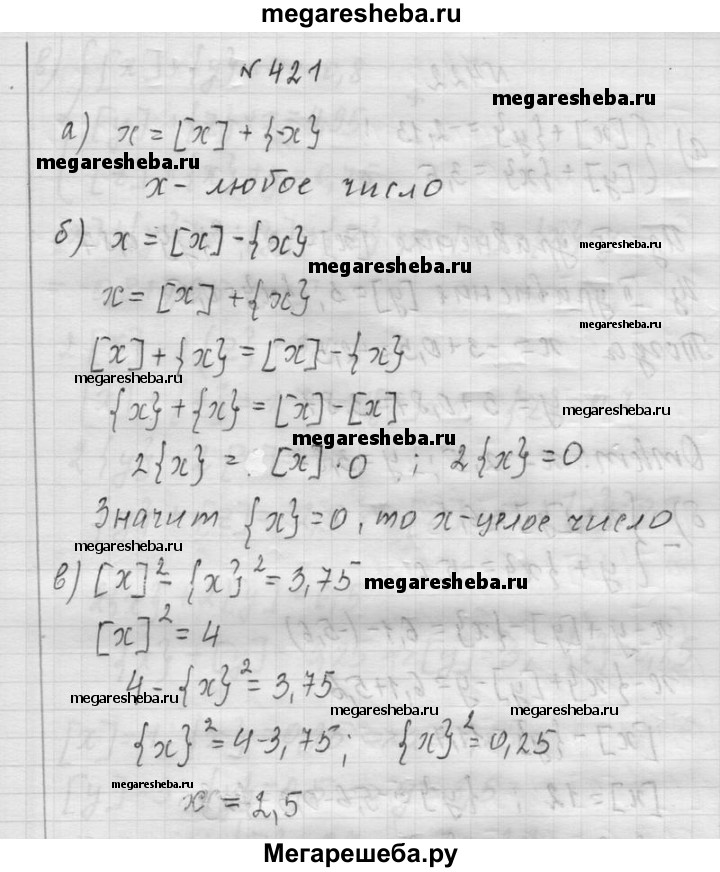 megaresheba.ru
№ 421
megaresheba.ru
а) x = [x] + {x}
megaresheba.ru
x - любое число
б) x = [x] - {x}
megaresheba.ru
megaresheba.ru
x = [x] + {x},
megaresheba.ru
[x] + {x} = [x] - {x}
megaresheba.ru
{x} + {x} = [x] - [x]
megaresheba.ru
megaresheba.ru
2{x} = [x] · 0 ; 2{x} = 0
Значит {x} = 0, то x - целое число
megaresheba.ru
в) [x]² - {x}² = 3,75
megaresheba.ru
[x]² = 4
4 - {x}² = 3,75
megaresheba.ru
megaresheba.ru
megaresheba.ru
{x}² = 4 - 3,75; {x}² = 0,25
megaresheba.ru
x = 2,5
Мегарешеба.ру